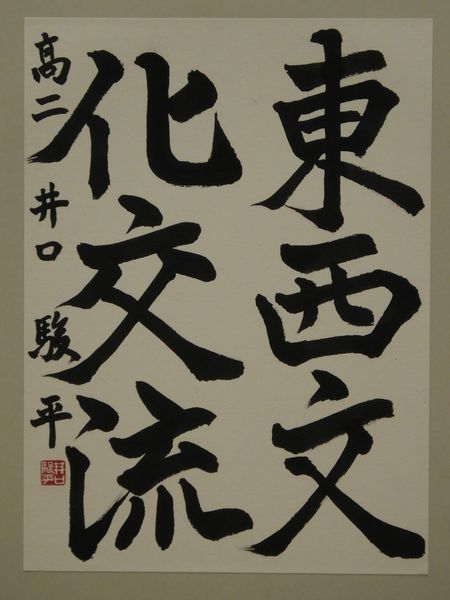 東西文
化交流
高二 井口 駿平
井口
駿平